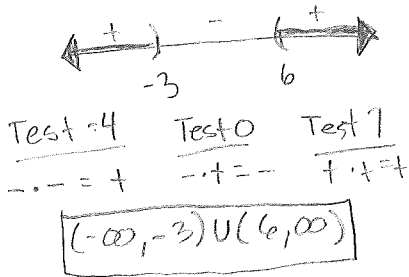 + - +
-3 6
Test -4 Test 0 Test 7
- · - = + - · + = - + · + = +
(-∞, -3) ∪ (6, ∞)